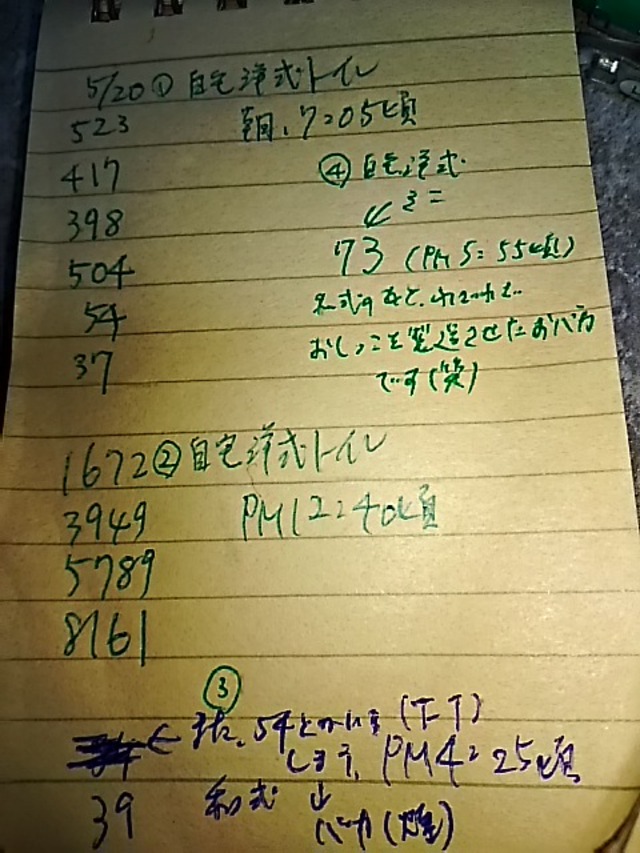 5/20 ① 自宅洋式トイレ
523 朝、7:05頃
417
398
504
54
37
④ 自宅洋式
73 (PM 5:55頃)
おしっこを製造させたおバカ
です(笑)
1672 ② 自宅洋式トイレ
3949 PM12:40頃
5789
8161
③
また、54とか (T_T)
しまう、PM4:25頃
39 和式 ↓
バカ(爆)